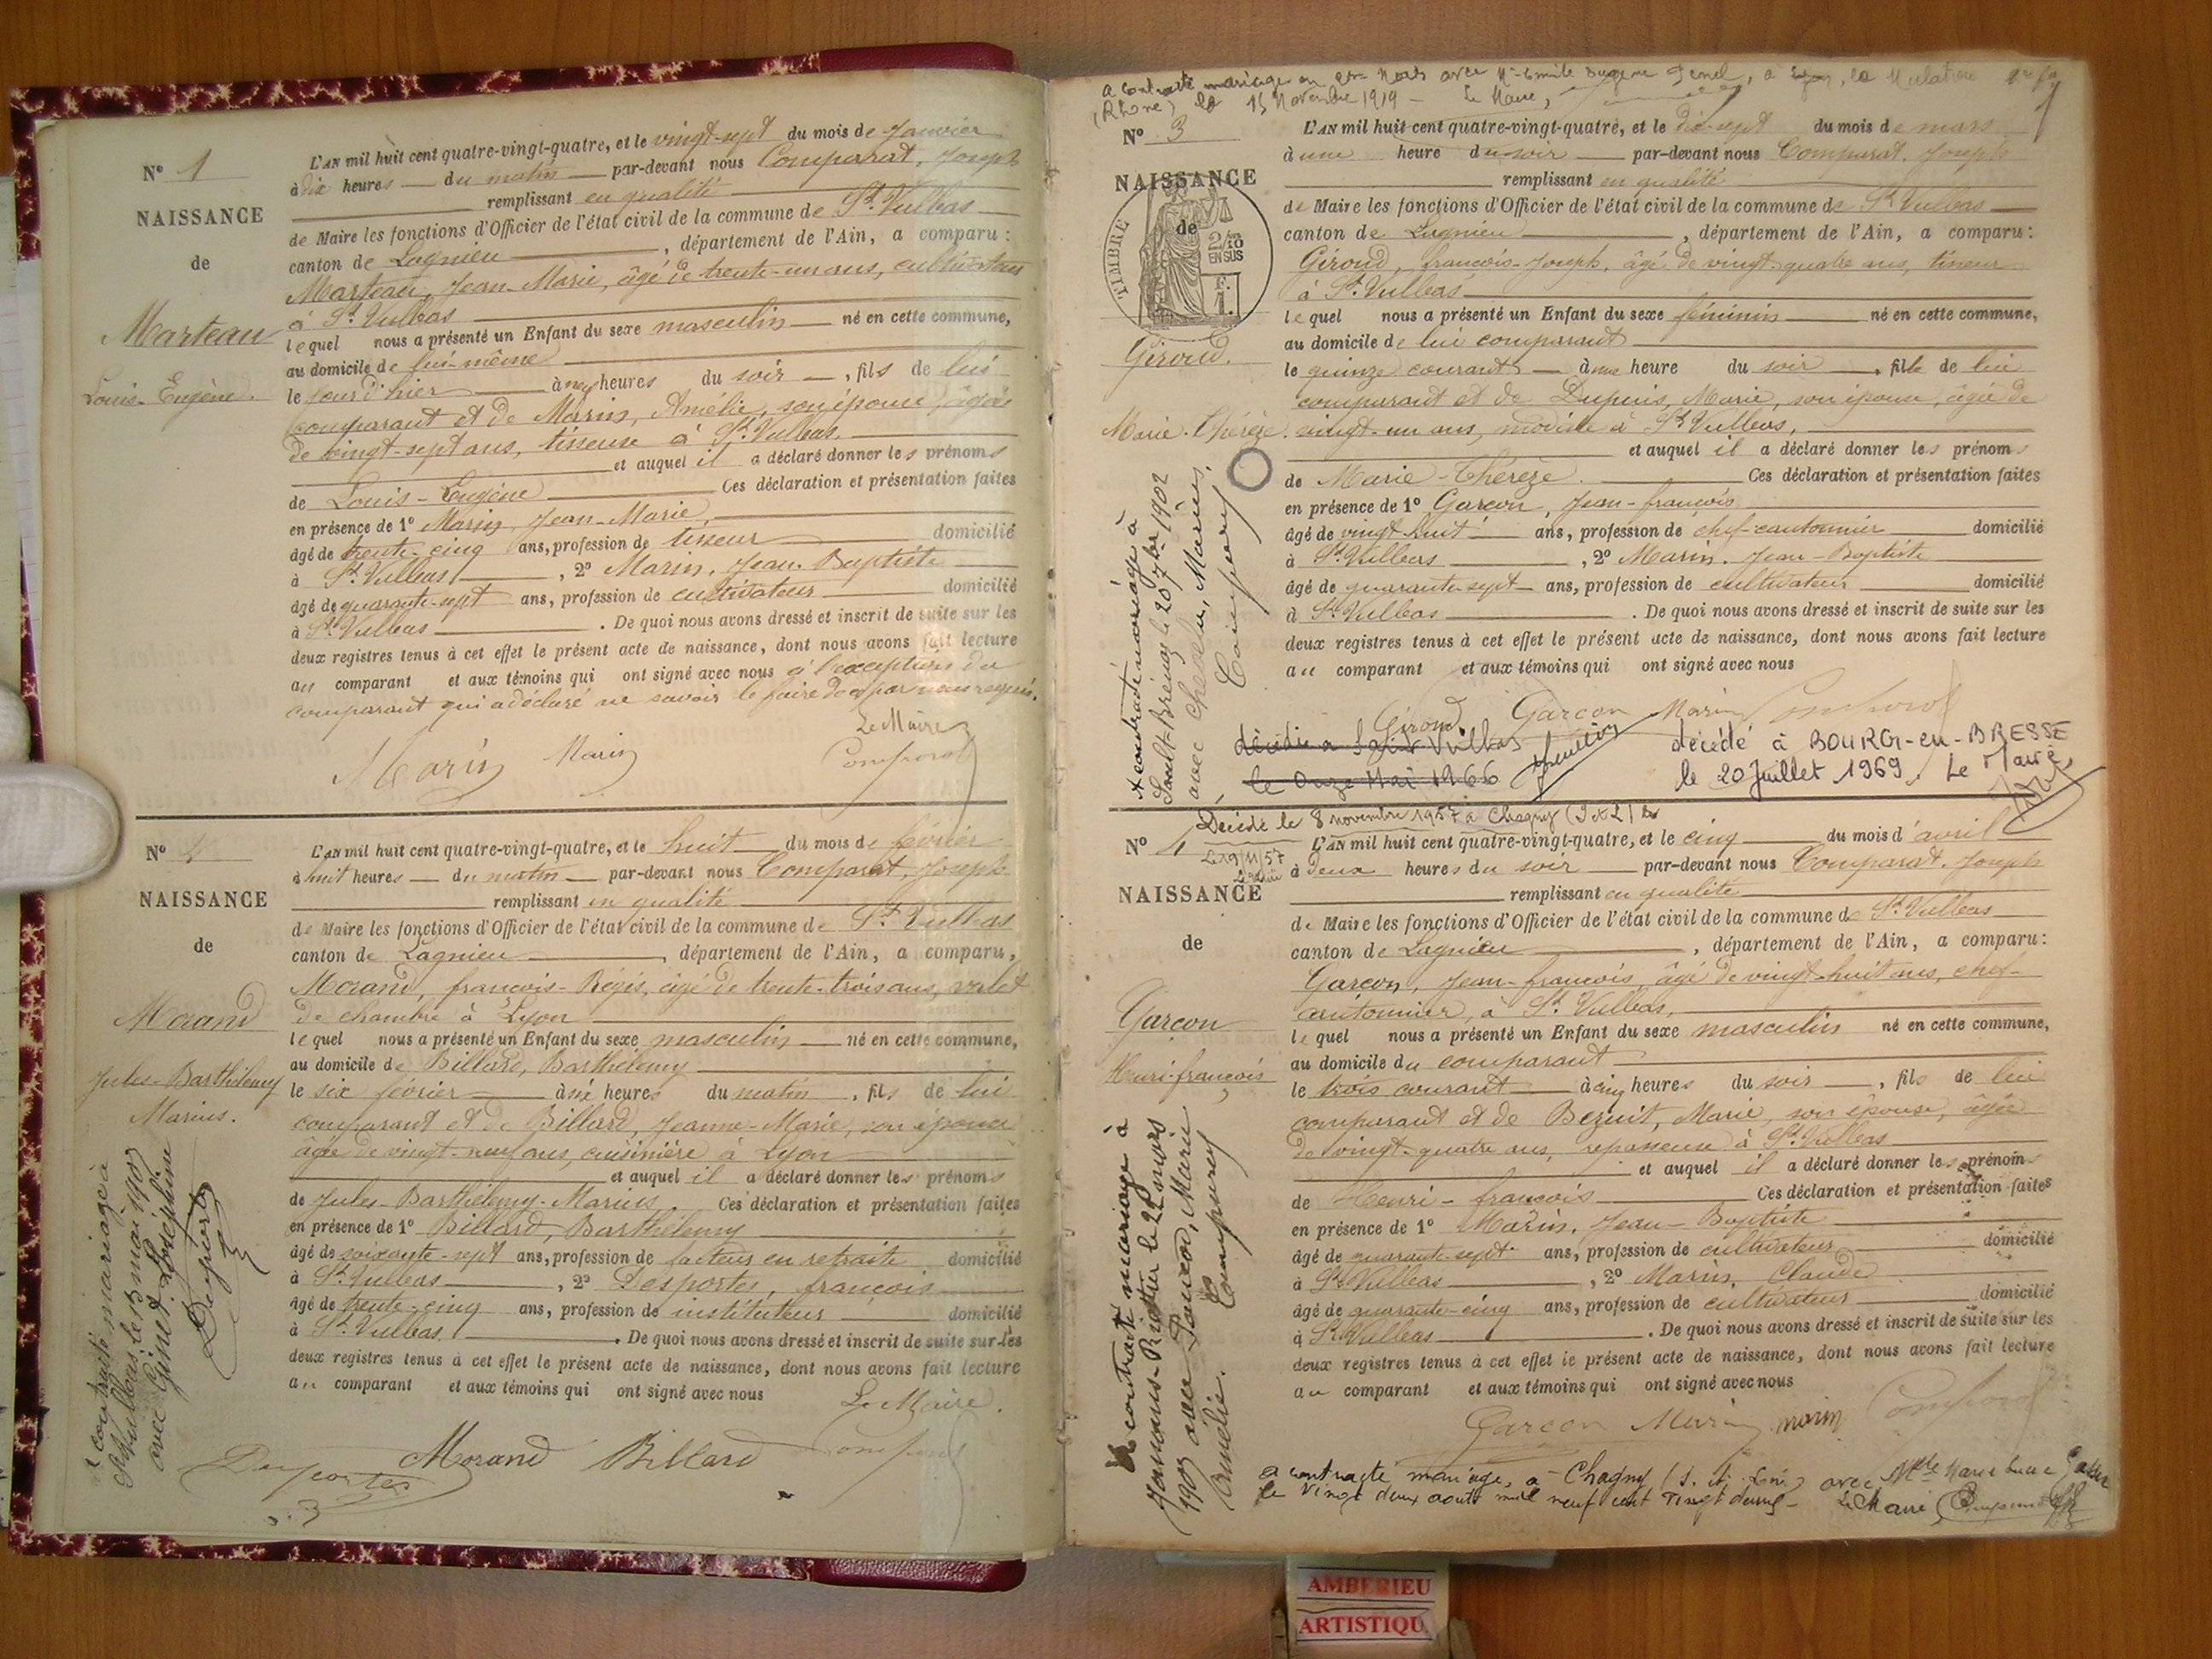 N° 1
NAISSANCE
de
Marteau
Louis-Eugène.
L'AN mil huit cent quatre-vingt-quatre, et le vingt-sept du mois de Janvier
à dix heures du matin par-devant nous Comparat, Joseph
remplissant en qualité
de Maire les fonctions d'Officier de l'état civil de la commune de St. Vulbas
canton de Lagnieu, département de l'Ain, a comparu :
Marteau, Jean-Marie, âgé de trente-un ans, cultivateur
à St. Vulbas
lequel nous a présenté un Enfant du sexe masculin né en cette commune,
au domicile de lui-même
le jour d'hier à neuf heures du soir, fils de lui
comparant et de Marin, Amélie, son épouse, âgée
de vingt-sept ans, tisseuse à St. Vulbas,
et auquel il a déclaré donner les prénoms
de Louis-Eugène Ces déclaration et présentation faites
en présence de 1° Marin, Jean-Marie,
âgé de trente-cinq ans, profession de tisseur domicilié
à St. Vulbas, 2° Marin, Jean-Baptiste
âgé de quarante-sept ans, profession de cultivateur domicilié
à St. Vulbas. De quoi nous avons dressé et inscrit de suite sur les
deux registres tenus à cet effet le présent acte de naissance, dont nous avons fait lecture
au comparant et aux témoins qui ont signé avec nous à l'exception du
comparant qui a déclaré ne savoir le faire de ce par nous requis.
Le Maire
Marin Marin Comparat
N° 2
NAISSANCE
de
Morand
Jules-Barthélemy
Marius.
L'AN mil huit cent quatre-vingt-quatre, et le huit du mois de février
à huit heures du matin par-devant nous Comparat, Joseph
remplissant en qualité
de Maire les fonctions d'Officier de l'état civil de la commune de St. Vulbas
canton de Lagnieu, département de l'Ain, a comparu,
Morand, françois-Régis, âgé de trente-trois ans, valet
de chambre à Lyon
lequel nous a présenté un Enfant du sexe masculin né en cette commune,
au domicile de Billard, Barthélemy
le six février à six heures du matin, fils de lui
comparant et de Billard, Jeanne-Marie, son épouse
âgée de vingt-neuf ans, cuisinière à Lyon
et auquel il a déclaré donner les prénoms
de Jules-Barthélemy-Marius Ces déclaration et présentation faites
en présence de 1° Billard, Barthélemy
âgé de soixante-sept ans, profession de facteur en retraite domicilié
à St. Vulbas, 2° Desportes, françois
âgé de trente-cinq ans, profession de instituteur domicilié
à St. Vulbas. De quoi nous avons dressé et inscrit de suite sur les
deux registres tenus à cet effet le présent acte de naissance, dont nous avons fait lecture
au comparant et aux témoins qui ont signé avec nous
Le Maire.
Desportes Morand Billard Comparat
A contracté mariage à
St Vulbas, le 13 mai 1905
avec Ginet, Joséphine
Desportes
a contracté mariage en avec Mr Emile Eugène, à la Mulatière
(Rhône) le 15 Novembre 1919 - Le Maire,
N° 3
NAISSANCE
de
TIMBRE
2/10
EN SUS
F.
1.
Giroud.
Marie-Thérèze.
L'AN mil huit cent quatre-vingt-quatre, et le dix-sept du mois de mars
à une heure du soir par-devant nous Comparat, Joseph
remplissant en qualité
de Maire les fonctions d'Officier de l'état civil de la commune de St. Vulbas
canton de Lagnieu, département de l'Ain, a comparu :
Giroud, francois-Joseph, âgé de vingt-quatre ans, tisseur
à St. Vulbas
lequel nous a présenté un Enfant du sexe féminin né en cette commune,
au domicile de lui comparant
le quinze courant à une heure du soir, fille de lui
comparant et de Dupuis, Marie, son épouse, âgée de
vingt-un ans, modiste à St. Vulbas,
et auquel il a déclaré donner les prénoms
de Marie-Thérèze. Ces déclaration et présentation faites
en présence de 1° Garcon, Jean-francois
âgé de vingt-huit ans, profession de chef-cantonnier domicilié
à St. Vulbas, 2° Marin, Jean-Baptiste
âgé de quarante-sept ans, profession de cultivateur domicilié
à St. Vulbas. De quoi nous avons dressé et inscrit de suite sur les
deux registres tenus à cet effet le présent acte de naissance, dont nous avons fait lecture
au comparant et aux témoins qui ont signé avec nous
Giroud Garcon Marin Comparat
A contracté mariage à
Sault-Brénaz le 20 7bre 1902
avec Marius,
décédée à Saint Vulbas
le onze Mai 1966
décédé à BOURG-en-BRESSE
le 20 Juillet 1969. Le Maire,
Décédé le 8 novembre 1957 à Chagny (S et L)
Le 19/11/57
N° 4
NAISSANCE
de
Garcon
Henri-francois
L'AN mil huit cent quatre-vingt-quatre, et le cinq du mois d'avril
à deux heures du soir par-devant nous Comparat, Joseph
remplissant en qualité
de Maire les fonctions d'Officier de l'état civil de la commune de St. Vulbas
canton de Lagnieu, département de l'Ain, a comparu :
Garcon, Jean-francois, âgé de vingt-huit ans, chef-
cantonnier, à St. Vulbas,
lequel nous a présenté un Enfant du sexe masculin né en cette commune,
au domicile du comparant
le trois courant à cinq heures du soir, fils de lui
comparant et de Bezuit, Marie, son épouse, âgée
de vingt-quatre ans, repasseuse à St. Vulbas
et auquel il a déclaré donner les prénoms
de Henri-francois Ces déclaration et présentation faites
en présence de 1° Marin, Jean-Baptiste
âgé de quarante-sept ans, profession de cultivateur domicilié
à St. Vulbas, 2° Marin, Claude
âgé de quarante-cinq ans, profession de cultivateur domicilié
à St. Vulbas. De quoi nous avons dressé et inscrit de suite sur les
deux registres tenus à cet effet le présent acte de naissance, dont nous avons fait lecture
au comparant et aux témoins qui ont signé avec nous
Garcon Marin Marin Comparat
A contracté mariage à
le 22 mars
1905 avec Marie
Amélie.
a contracté mariage, à Chagny (S. et Loire) avec Mlle Marie
le vingt deux août mil neuf cent vingt deux - Le Maire
AMBERIEU
ARTISTIQU